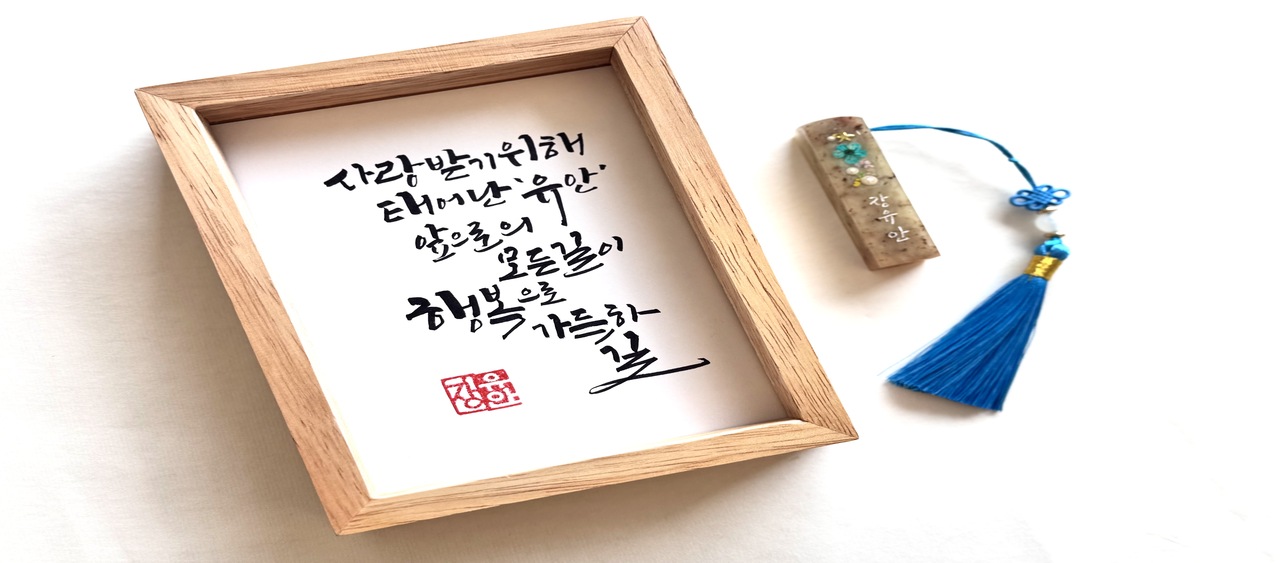 사랑받기위해
태어난 '유안'
앞으로의
모든길이
행복으로
가득하길
장유안
장
유
안